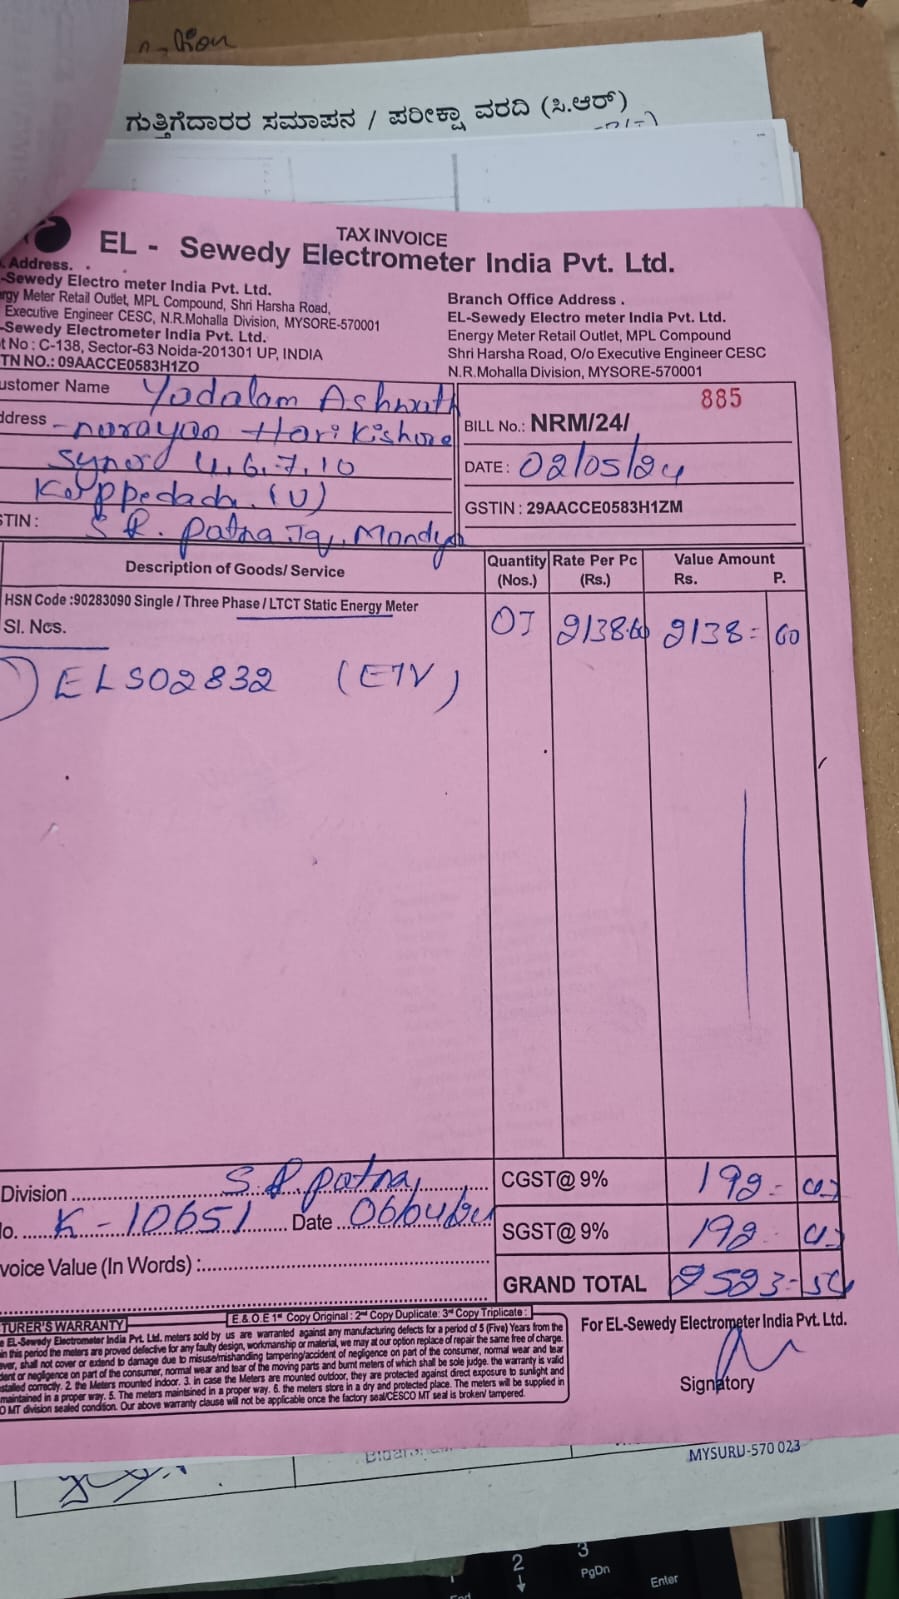 ಗುತ್ತಿಗೆದಾರರ ಸಮಾಪನ / ಪರೀಕ್ಷಾ ವರದಿ (ಸಿ.ಆರ್)
TAX INVOICE
EL - Sewedy Electrometer India Pvt. Ltd.
Address.
-Sewedy Electro meter India Pvt. Ltd.
rgy Meter Retail Outlet, MPL Compound, Shri Harsha Road,
Executive Engineer CESC, N.R.Mohalla Division, MYSORE-570001
-Sewedy Electrometer India Pvt. Ltd.
t No : C-138, Sector-63 Noida-201301 UP, INDIA
TN NO.: 09AACCE0583H1ZO
Branch Office Address .
EL-Sewedy Electro meter India Pvt. Ltd.
Energy Meter Retail Outlet, MPL Compound
Shri Harsha Road, O/o Executive Engineer CESC
N.R.Mohalla Division, MYSORE-570001
ustomer Name Yadalam Ashwath
ddress -narayan Hari Kishore
Syno 4, 6, 7, 10
(V)
STIN : S R. Patna Tq, Mandya
885
BILL No.: NRM/24/
DATE : 02/05/24
GSTIN : 29AACCE0583H1ZM
Description of Goods/ Service
Quantity (Nos.)
Rate Per Pc (Rs.)
Value Amount Rs. P.
HSN Code :90283090 Single / Three Phase / LTCT Static Energy Meter
Sl. Nos.
01 2138.60 2138= 60
ELS02832 (ETV)
Division S R patna
lo. K-10651 Date 06/04/24
voice Value (In Words) :
CGST@ 9% 192-
SGST@ 9% 192
GRAND TOTAL 2523-54
E & O E 1st Copy Original : 2nd Copy Duplicate: 3rd Copy Triplicate :
TURER'S WARRANTY
EL-Sewedy Electrometer India Pvt. Ltd. meters sold by us are warranted against any manufacturing defects for a period of 5 (Five) Years from the
in this period the meters are proved defective for any faulty design, workmanship or material, we may at our option replace of repair the same free of charge.
ever, shall not cover or extend to damage due to misuse/mishandling tampering/accident of negligence on part of the consumer, normal wear and tear
dent or negligence on part of the consumer, normal wear and tear of the moving parts and burnt meters of which shall be sole judge. the warranty is valid
stalled correctly. 2. the Meters mounted indoor. 3. in case the Meters are mounted outdoor, they are protected against direct exposure to sunlight and
maintained in a proper way. 5. The meters maintsined in a proper way. 6. the meters store in a dry and protected place. The meters will be supplied in
O MT division sealed condition. Our above warranty clause will not be applicable once the factory seal/CESCO MT seal is broken/ tampered.
For EL-Sewedy Electrometer India Pvt. Ltd.
Signatory
MYSURU-570 023
2
3
PgDn
Enter